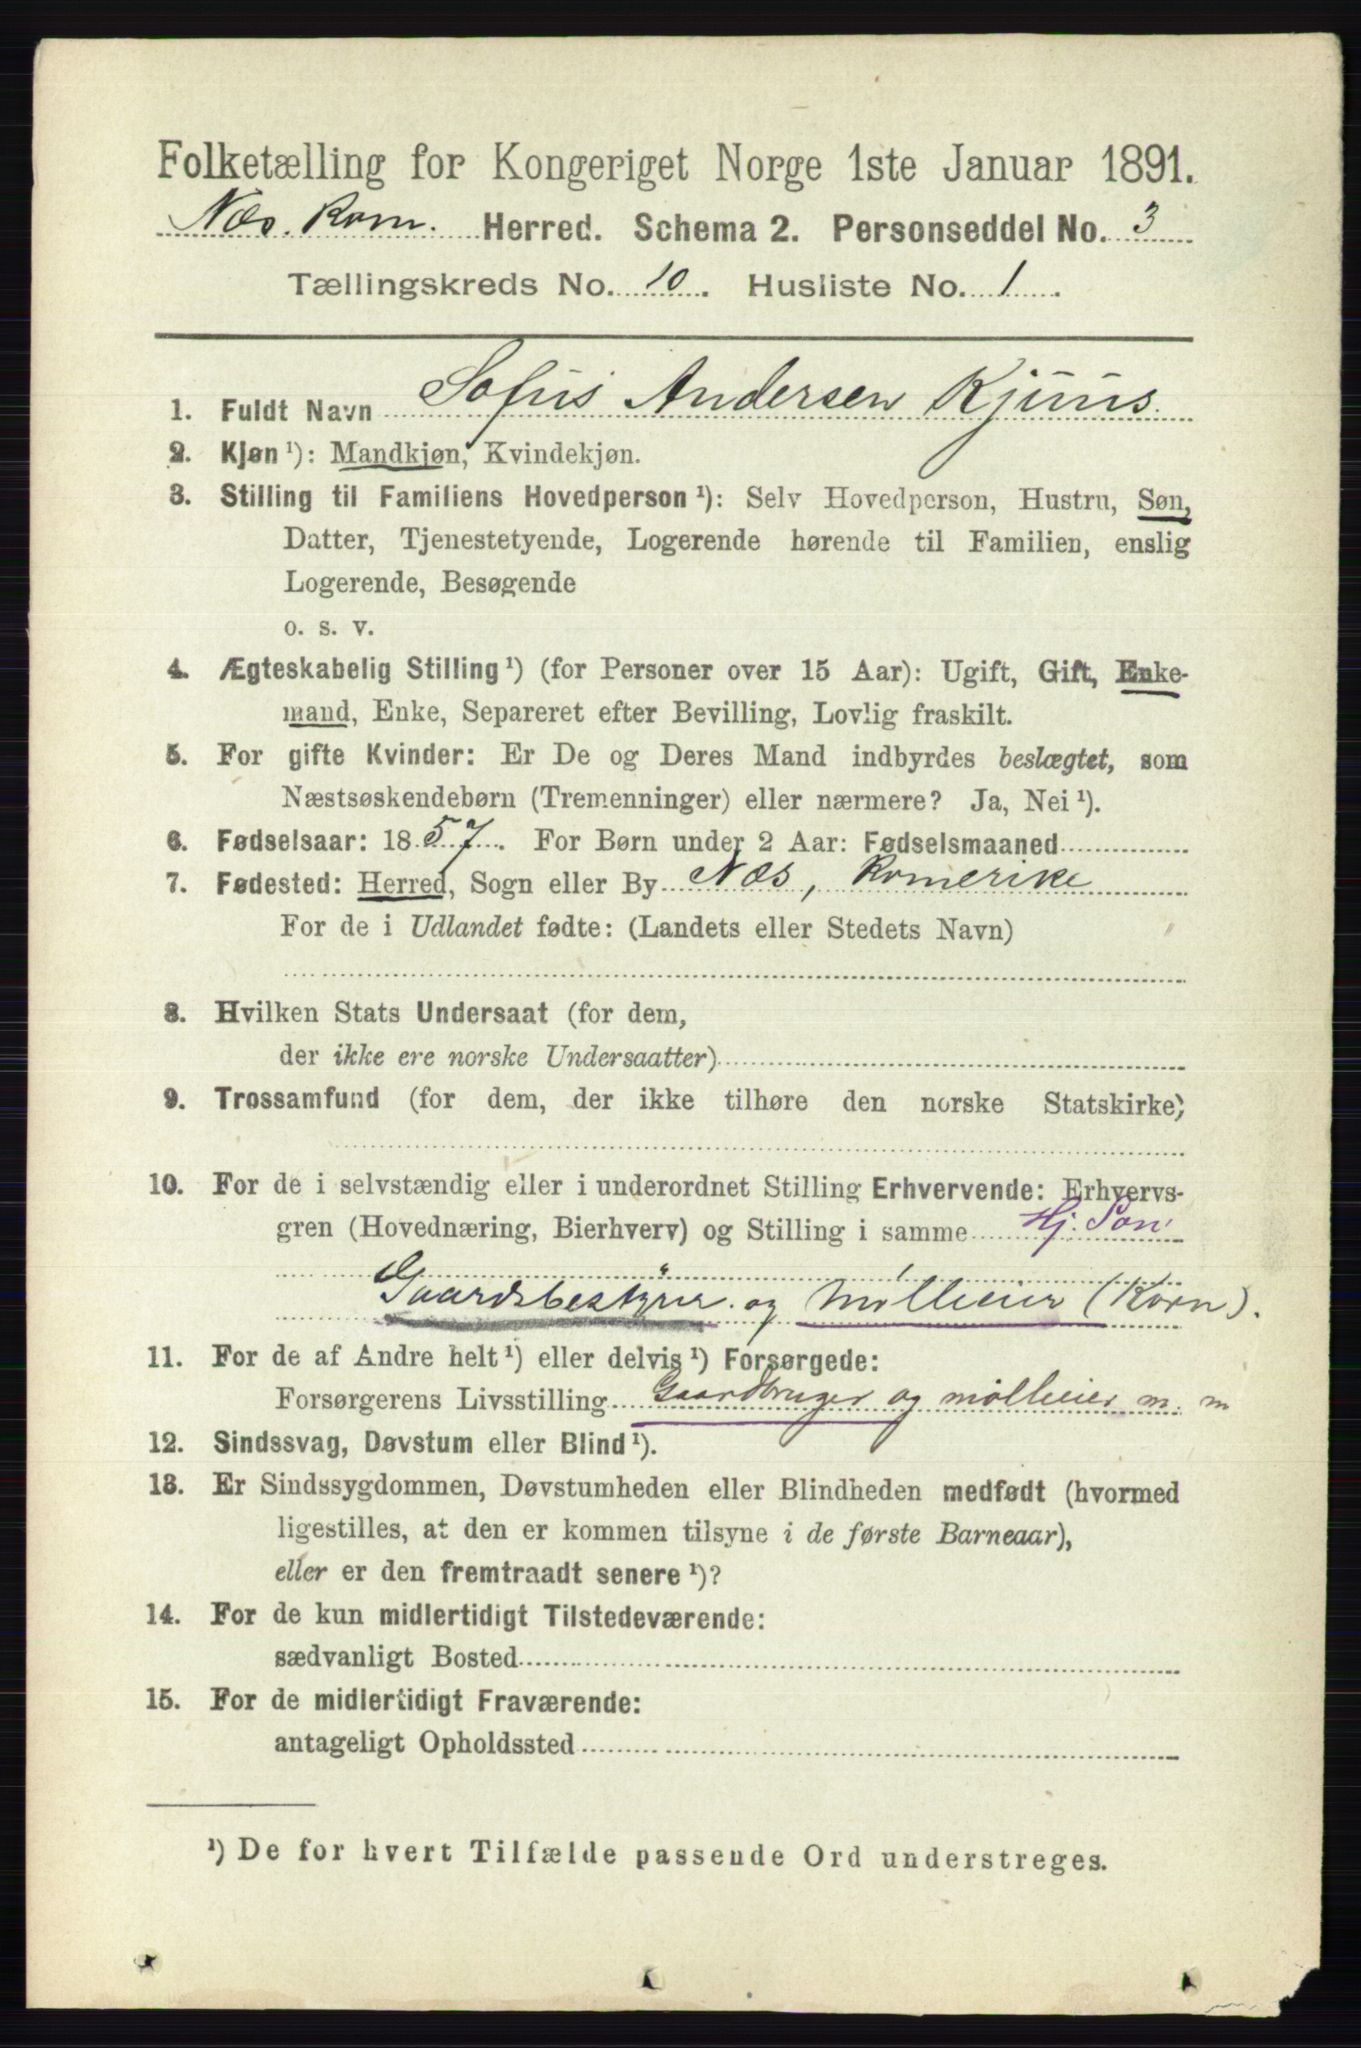 Folketælling for Kongeriget Norge 1ste Januar 1891.
Næs. Rom. Herred. Schema 2. Personseddel No. 3
Tællingskreds No. 10. Husliste No. 1.
1. Fuldt Navn Sofus Andersen Kjuus.
2. Kjøn ¹): Mandkjøn, Kvindekjøn.
3. Stilling til Familiens Hovedperson ¹): Selv Hovedperson, Hustru, Søn,
Datter, Tjenestetyende, Logerende hørende til Familien, enslig
Logerende, Besøgende
o. s. v.
4. Ægteskabelig Stilling ¹) (for Personer over 15 Aar): Ugift, Gift, Enke-
mand, Enke, Separeret efter Bevilling, Lovlig fraskilt.
5. For gifte Kvinder: Er De og Deres Mand indbyrdes beslægtet, som
Næstsøskendebørn (Tremenninger) eller nærmere? Ja, Nei ¹).
6. Fødselsaar: 1857. For Børn under 2 Aar: Fødselsmaaned
7. Fødested: Herred, Sogn eller By Næs, Romerike
For de i Udlandet fødte: (Landets eller Stedets Navn)
8. Hvilken Stats Undersaat (for dem,
der ikke ere norske Undersaatter)
9. Trossamfund (for dem, der ikke tilhøre den norske Statskirke)
10. For de i selvstændig eller i underordnet Stilling Erhvervende: Erhvervs-
gren (Hovednæring, Bierhverv) og Stilling i samme Hj. Søn
Gaardsbestyrer og Mølleeier (Korn).
11. For de af Andre helt ¹) eller delvis ¹) Forsørgede:
Forsørgerens Livsstilling Gaardbruger og mølleeier m. m
12. Sindssvag, Døvstum eller Blind ¹).
13. Er Sindssygdommen, Døvstumheden eller Blindheden medfødt (hvormed
ligestilles, at den er kommen tilsyne i de første Barneaar),
eller er den fremtraadt senere ¹)?
14. For de kun midlertidigt Tilstedeværende:
sædvanligt Bosted
15. For de midlertidigt Fraværende:
antageligt Opholdssted
¹) De for hvert Tilfælde passende Ord understreges.